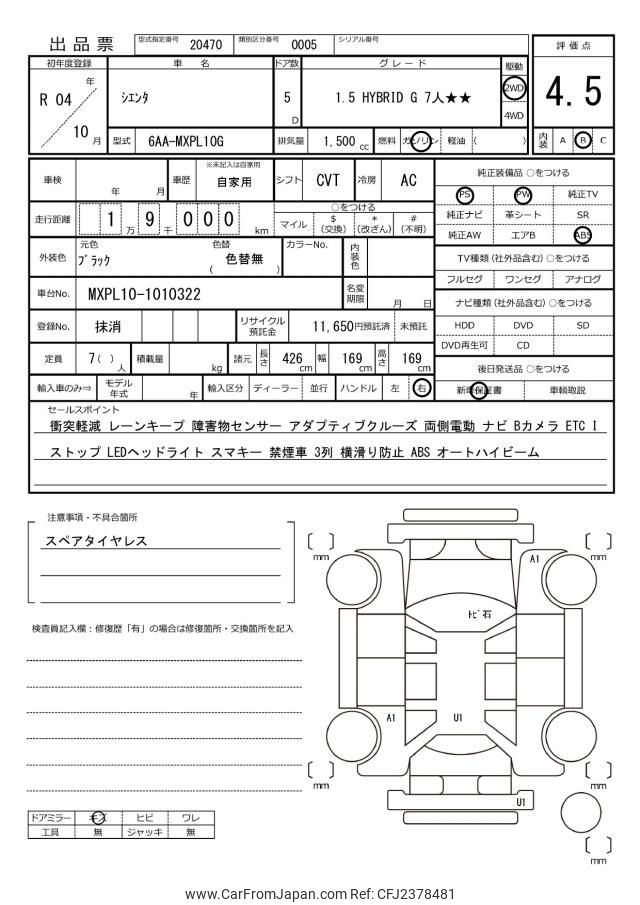 出品票 型式指定番号 20470 類別区分番号 0005 シリアル番号
評価点
4.5
内装 A B C
初年度登録 車名 ドア数 グレード 駆動
R 04 年 10 月 シエンタ 5 D 1.5 HYBRID G 7人★★ 2WD 4WD
型式 6AA-MXPL10G 排気量 1,500 cc 燃料 ガソリン 軽油 ( )
車検 年 月 車歴 ※未記入は自家用 自家用 シフト CVT 冷房 AC
走行距離 1 万 9 千 0 0 0 km
○をつける
マイル $(交換) *(改ざん) #(不明)
外装色 元色 ブラック 色替 ( 色替無 ) カラーNo. 内装色
車台No. MXPL10-1010322 名変期限 月 日
登録No. 抹消 リサイクル預託金 11,650円預託済 未預託
定員 7( )人 積載量 kg 諸元 長さ 426 cm 幅 169 cm 高さ 169 cm
輸入車のみ⇒ モデル年式 年 輸入区分 ディーラー 並行 ハンドル 左 右
純正装備品 ○をつける
PS PW 純正TV
純正ナビ 革シート SR
純正AW エアB ABS
TV種類(社外品含む) ○をつける
フルセグ ワンセグ アナログ
ナビ種類(社外品含む) ○をつける
HDD DVD SD
DVD再生可 CD
後日発送品 ○をつける
新車保証書 車輌取説
セールスポイント
衝突軽減 レーンキープ 障害物センサー アダプティブクルーズ 両側電動 ナビ Bカメラ ETC I
ストップ LEDヘッドライト スマキー 禁煙車 3列 横滑り防止 ABS オートハイビーム
注意事項・不具合箇所
スペアタイヤレス
検査員記入欄：修復歴「有」の場合は修復箇所・交換箇所を記入
ドアミラー キズ ヒビ ワレ
工具 無 ジャッキ 無
mm
mm
A1
トビ石
A1
U1
mm
mm
U1
mm
www.CarFromJapan.com Ref: CFJ2378481